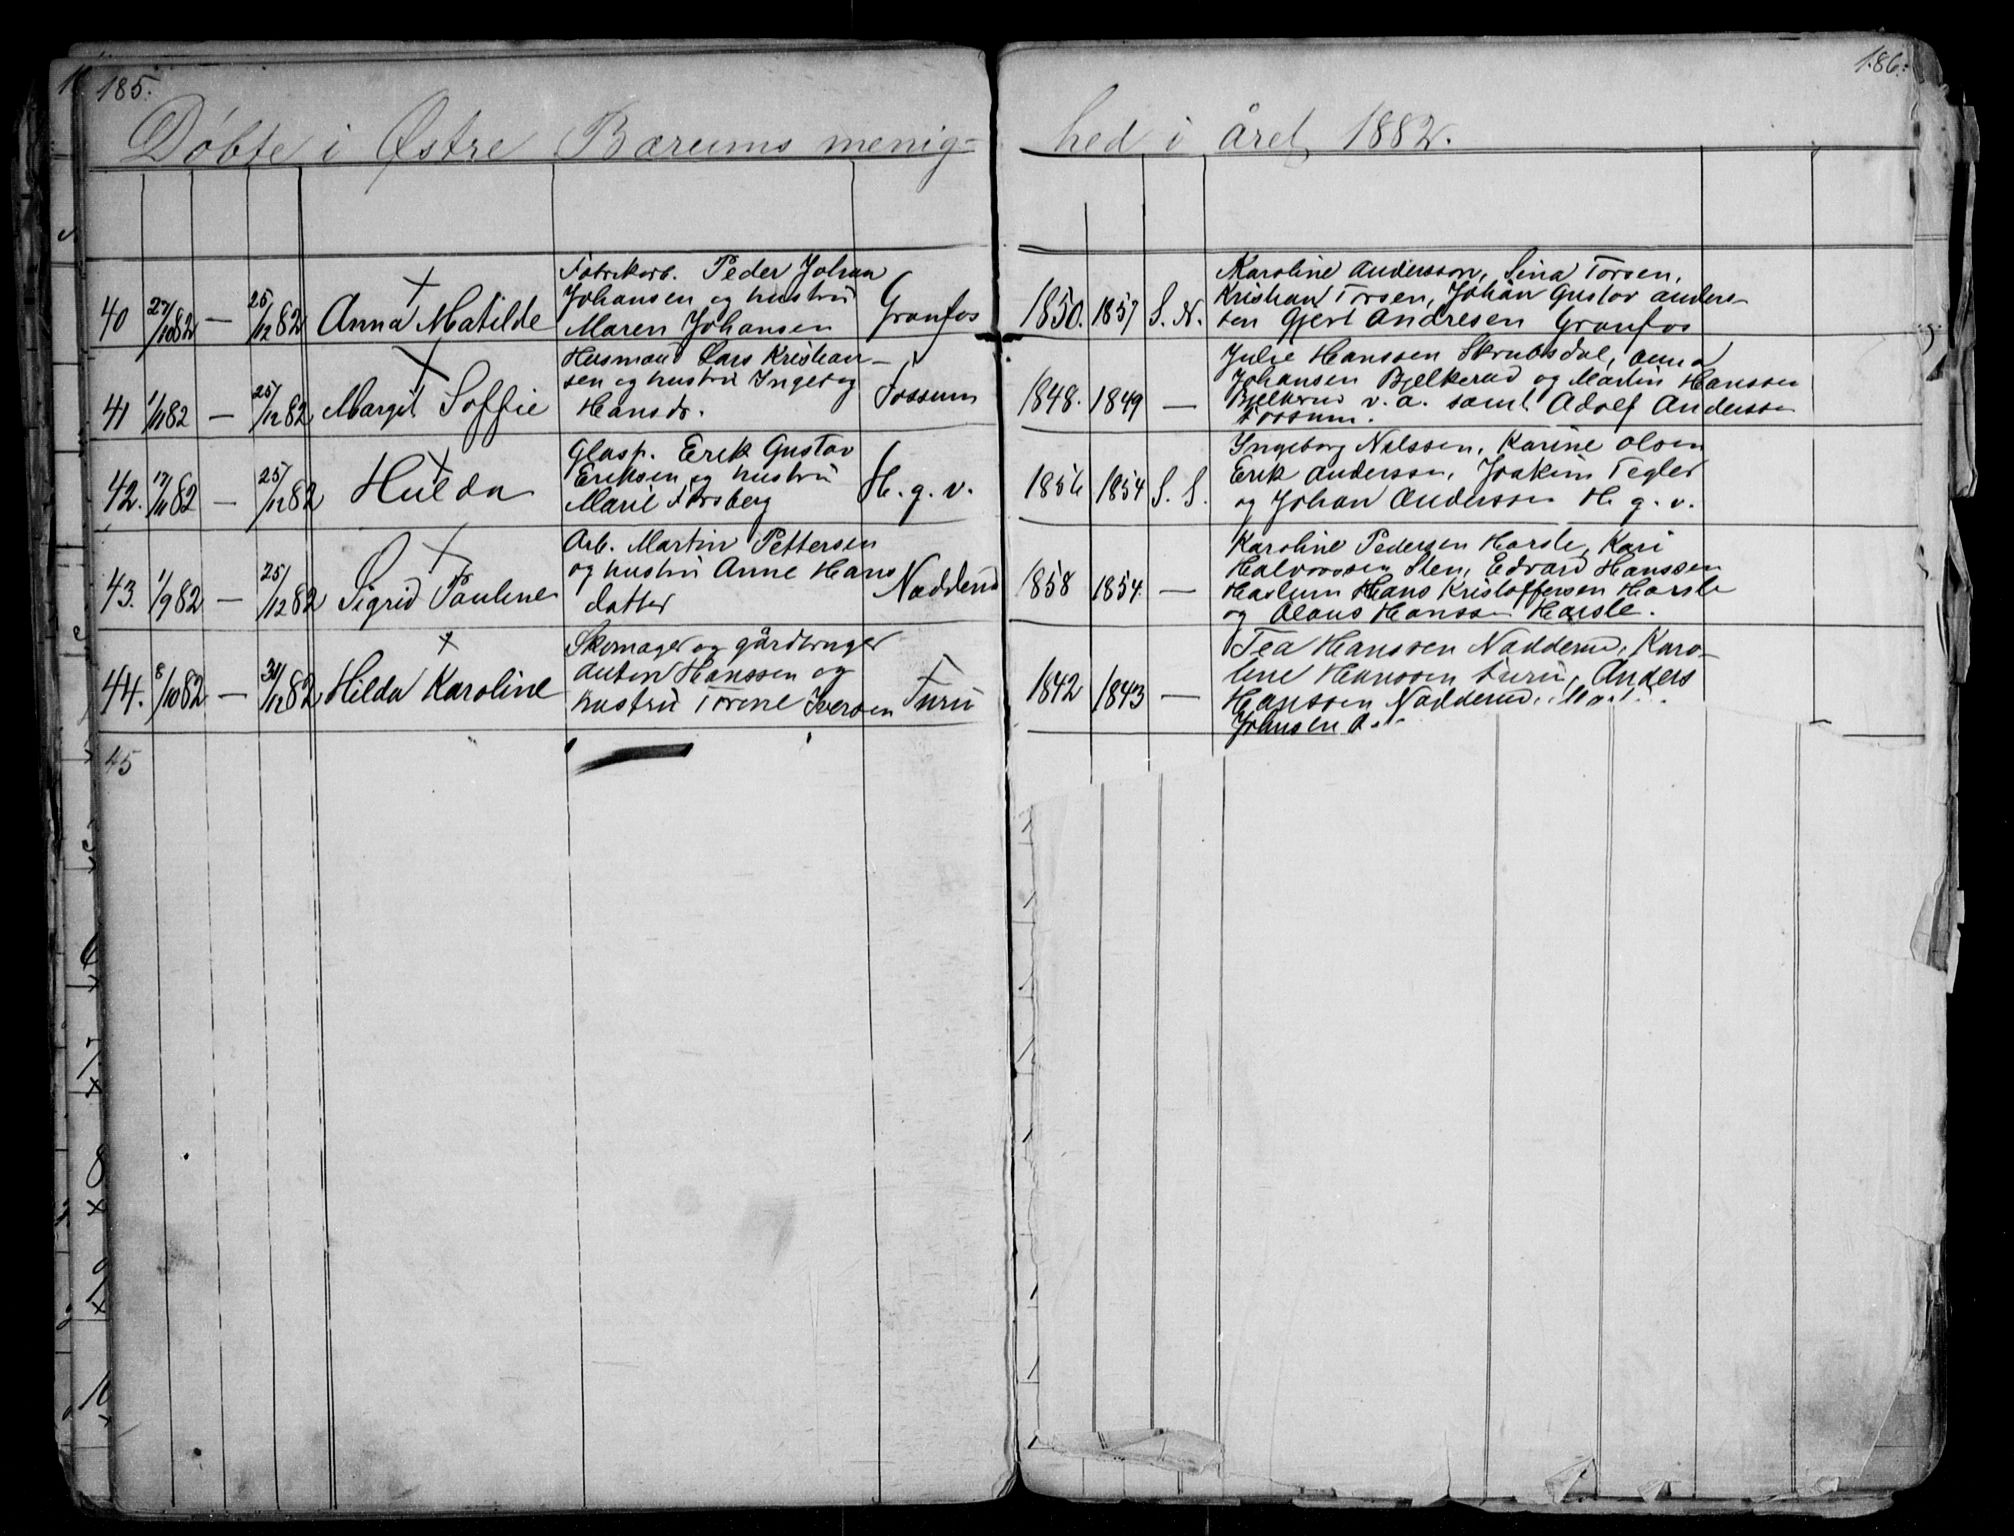 185.
186.
Døbte i Østre Bærums menig-
hed i året 1882.
40 27/10 82 — 25/12 82 Anna Matilde
Fabrikarb. Peder Johan
Johansen og hustru
Maren Johansen
Granfos
1850. 1857 S. N.
Karoline Andersson, Lina Torsen,
Kristian Torsen, Johan Gustav Anders-
sen Gjert Andresen Granfos
41 1/11 82 — 25/12 82 Margit Soffie
Husmand Lars Kristian-
sen og hustru Ingeborg
Hansdr.
Fossum
1848. 1849 —
Julie Hanssen Skrubsdal, Anna
Johansen Bjelkerud og Martin Hanssen
Bjelkerud v. a. samt Adolf Andersen
Fossum.
42. 17/11 82 — 25/12 82 Hulda
Glasp. Erik Gustav
Eriksen og hustru
Marie Forsberg
H. g. v.
1856 1854 S. S.
Ingeborg Nilssen, Karine Olsen
Erik Andersen, Joakim Tegler
og Johan Anderssen H. g. v.
43. 1/9 82 — 25/12 82 Sigrid Pauline
Arb. Martin Pettersen
og hustru Anne Hans
datter
Nadderud
1858 1854. —
Karoline Pedersen Hosle, Kari
Halvorssen Sten, Edvard Hanssen
Haslum Hans Kristoffersen Hosle
og Olaus Hanssen Hosle.
44. 8/10 82 — 31/12 82 Hilda Karoline
Skomager og gårdbruger
Anton Hanssen og
hustru Torine Iversen
Furu
1842 1843 —
Tea Hanssen Nadderud, Karo-
line Hanssen Furu, Anders
Hanssen Nadderud,
Johansen
45